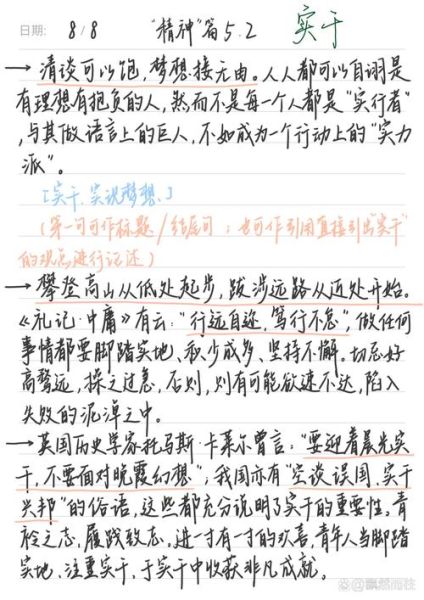 日期: 8/8 "精神"篇5.2 实干
→清谈可以饱,梦想接无由。人人都可以自诩是
有理想有抱负的人,然而不是每一个人都是"实行者"
,与其做语言上的巨人,不如成为一个行动上的"实力
派"。
[实干,实现梦想.]
(第一句可作标题/结尾句;也可作引用直接引出"实干"
的观点进行论述)
→攀登高山从低处起步,跋涉远路从近处开始。
《礼记·中庸》有云:"行远自迩,笃行不怠",做任何
事情都要脚踏实地、积少成多、坚持不懈。切忌好
高骛远,操之过急,否则,则有可能欲速不达,陷入
失败的泥淖之中。
→英国历史学家托马斯·卡莱尔曾言:"要迎着晨光实
干,不要面对晚霞幻想";我国亦有"空谈误国,实干
兴邦"的俗语,这些都充分说明了实干的重要性。青
衿之志,履践致远,进一寸有一寸的欢喜,青年人当脚踏
实地、注重实干,于实干中收获非凡成就。